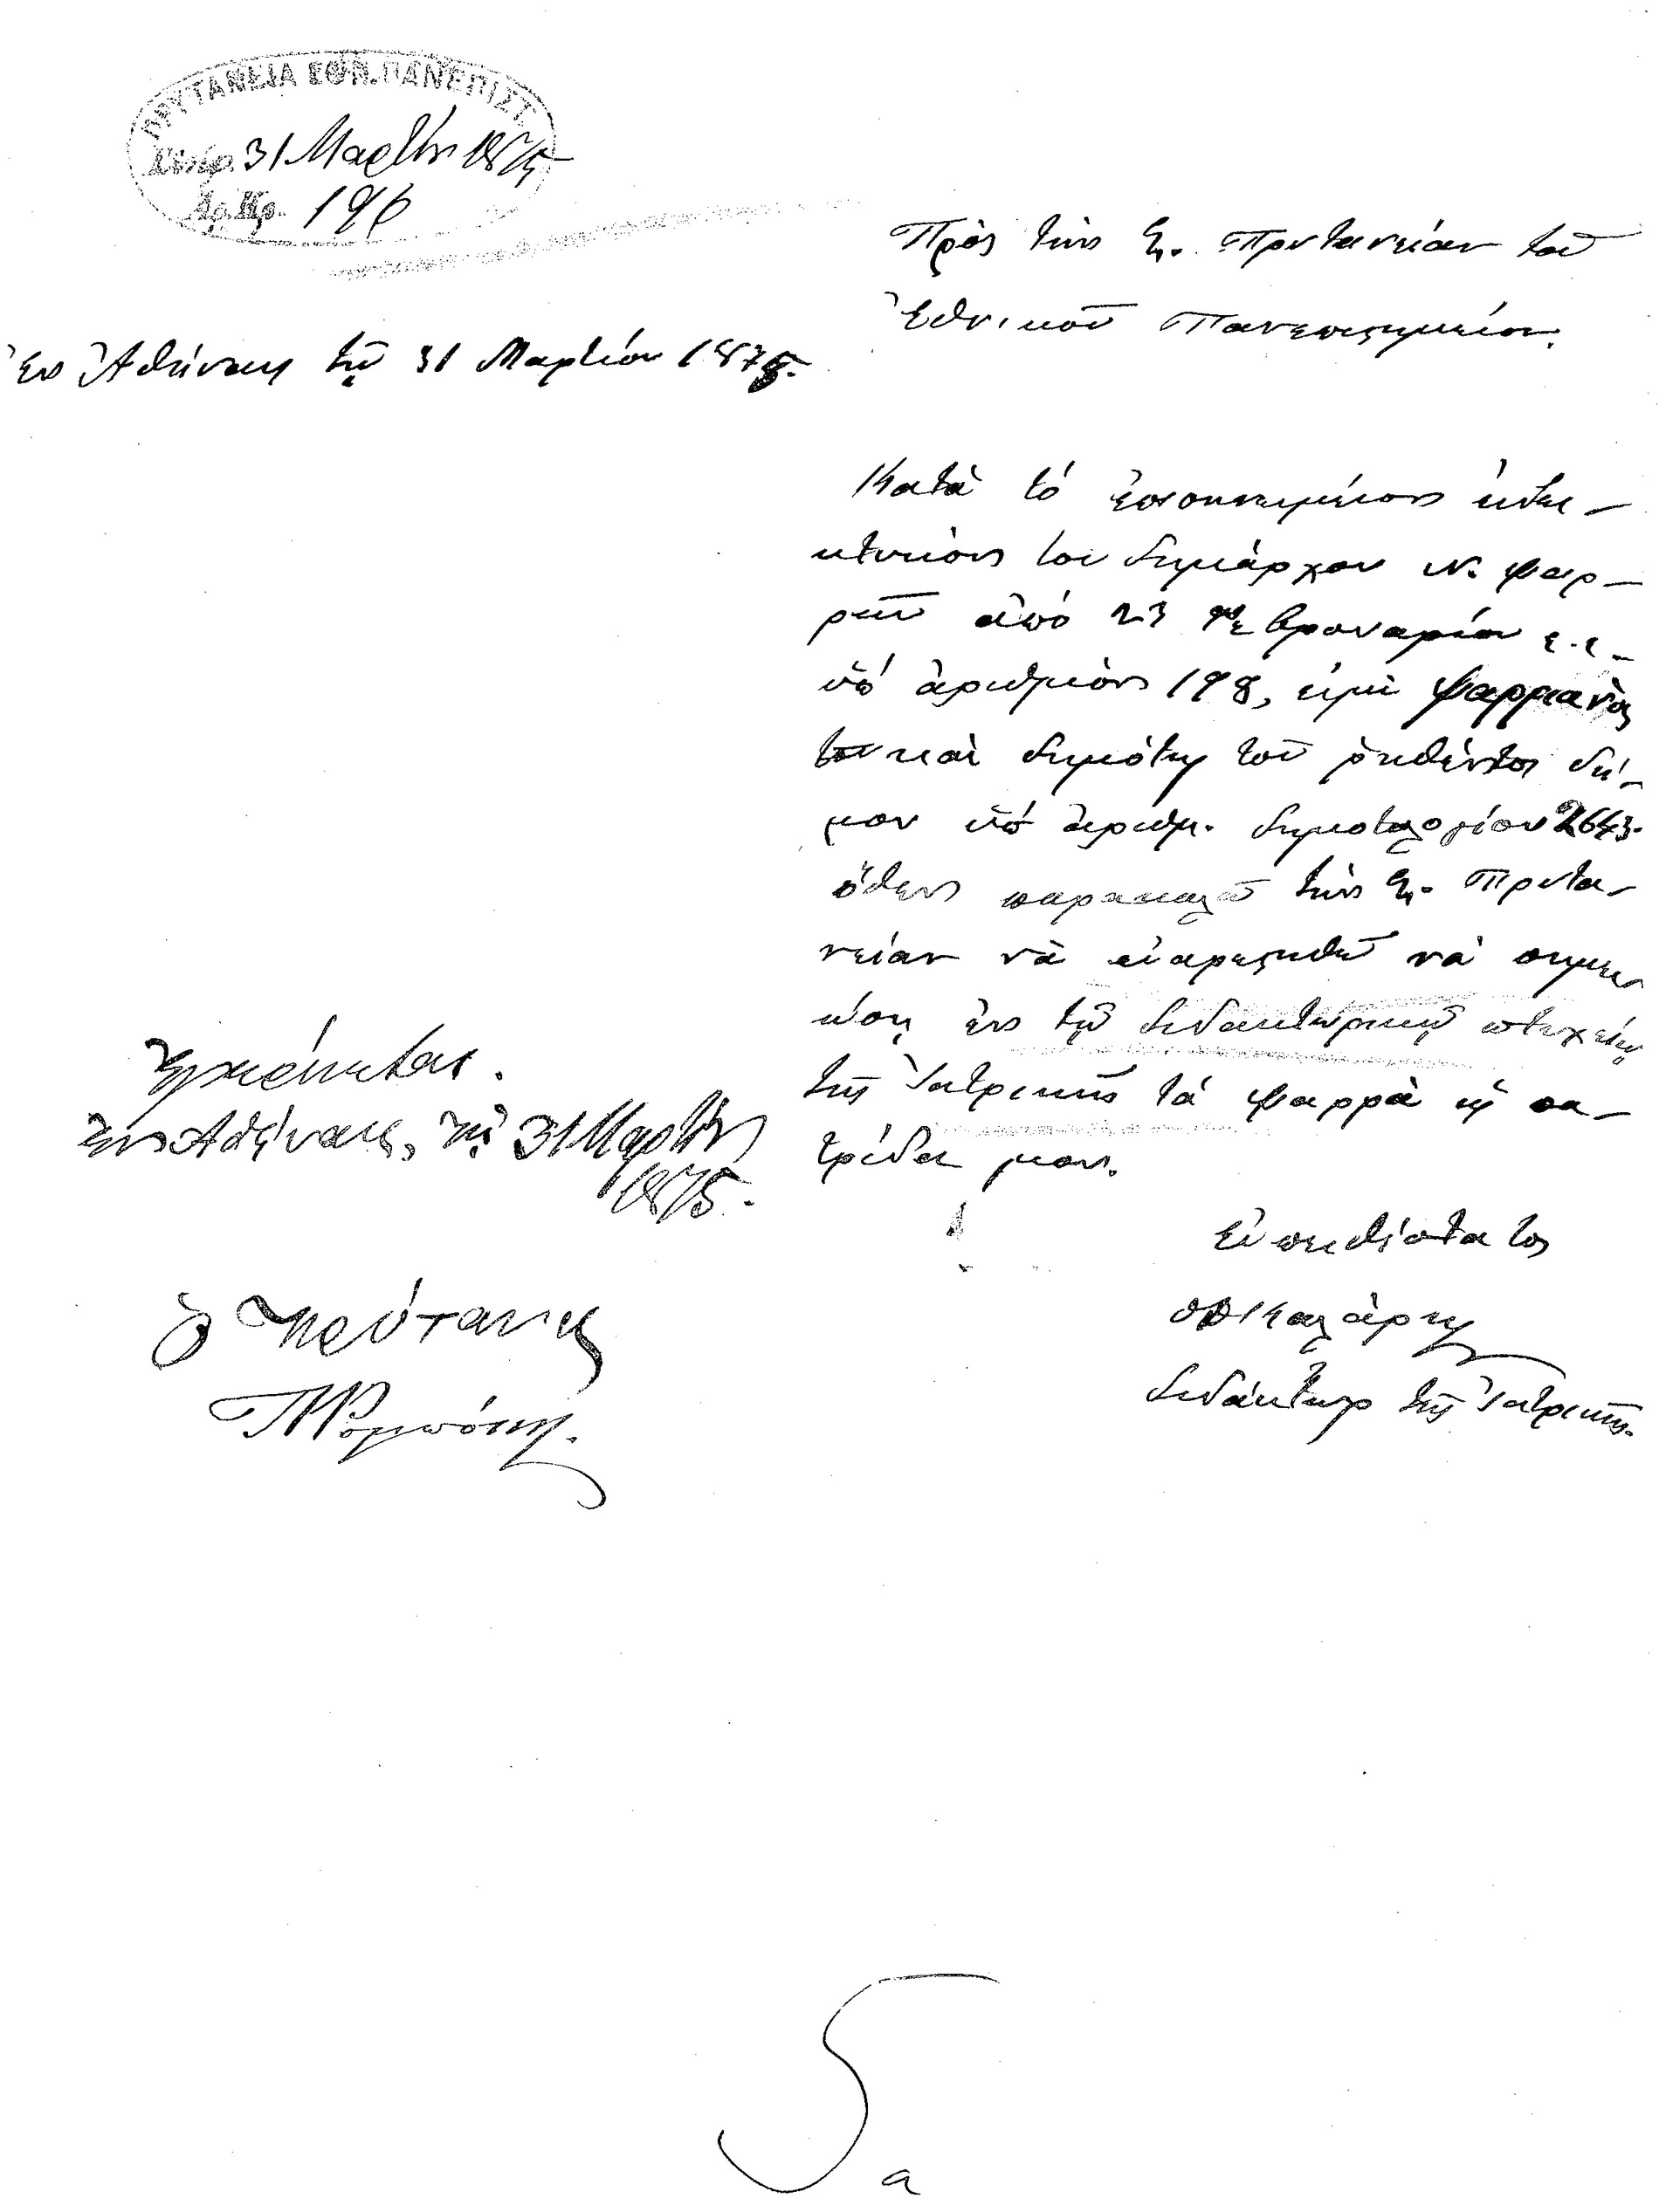 ΠΡΥΤΑΝΕΙΑ ΕΘΝ. ΠΑΝΕΠΙΣΤ.
31 Μαρτίου 1875
Ἀρ. Πρ. 196
Πρὸς τὴν Σ. Πρυτανείαν τοῦ
Ἐθνικοῦ Πανεπιστημείου.
Ἐν Ἀθήναις τῇ 31 Μαρτίου 1875.
Κατὰ τό ἐπισυνημμένον ἐνδει-
κτικόν του δημάρχου Ν. Ψαρ-
ρῶν ἀπό 23 Φεβρουαρίου ἐ.ἐ.
ὑπ' ἀριθμὸν 198, εἰμὶ Ψαρριανὸς
καὶ δημότης τοῦ ῥηθέντος δή-
μου ὑπ' ἀριθμ. δημοτολογίου 2643.
ὅθεν παρακαλῶ τὴν Σ. Πρυτα-
νείαν νὰ εὐαρεστηθῇ νὰ σημει-
ώσῃ ἐν τῷ διδακτωρικῷ πτυχείῳ
τῆς Ἰατρικῆς τά Ψαρρὰ ὡς πα-
τρίδα μου.
Εὐπειθέστατος
διδάκτωρ τῆς Ἰατρικῆς.
Ἐγκρίνεται.
Ἐν Ἀθήναις, τῇ 31 Μαρτίου
1875.
Ὁ Πρύτανις
5
a